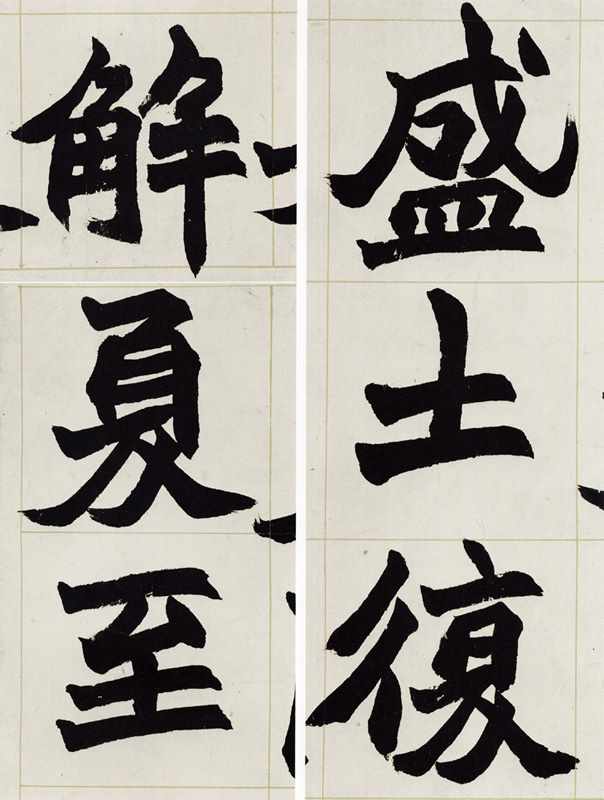 盛土復
解夏至